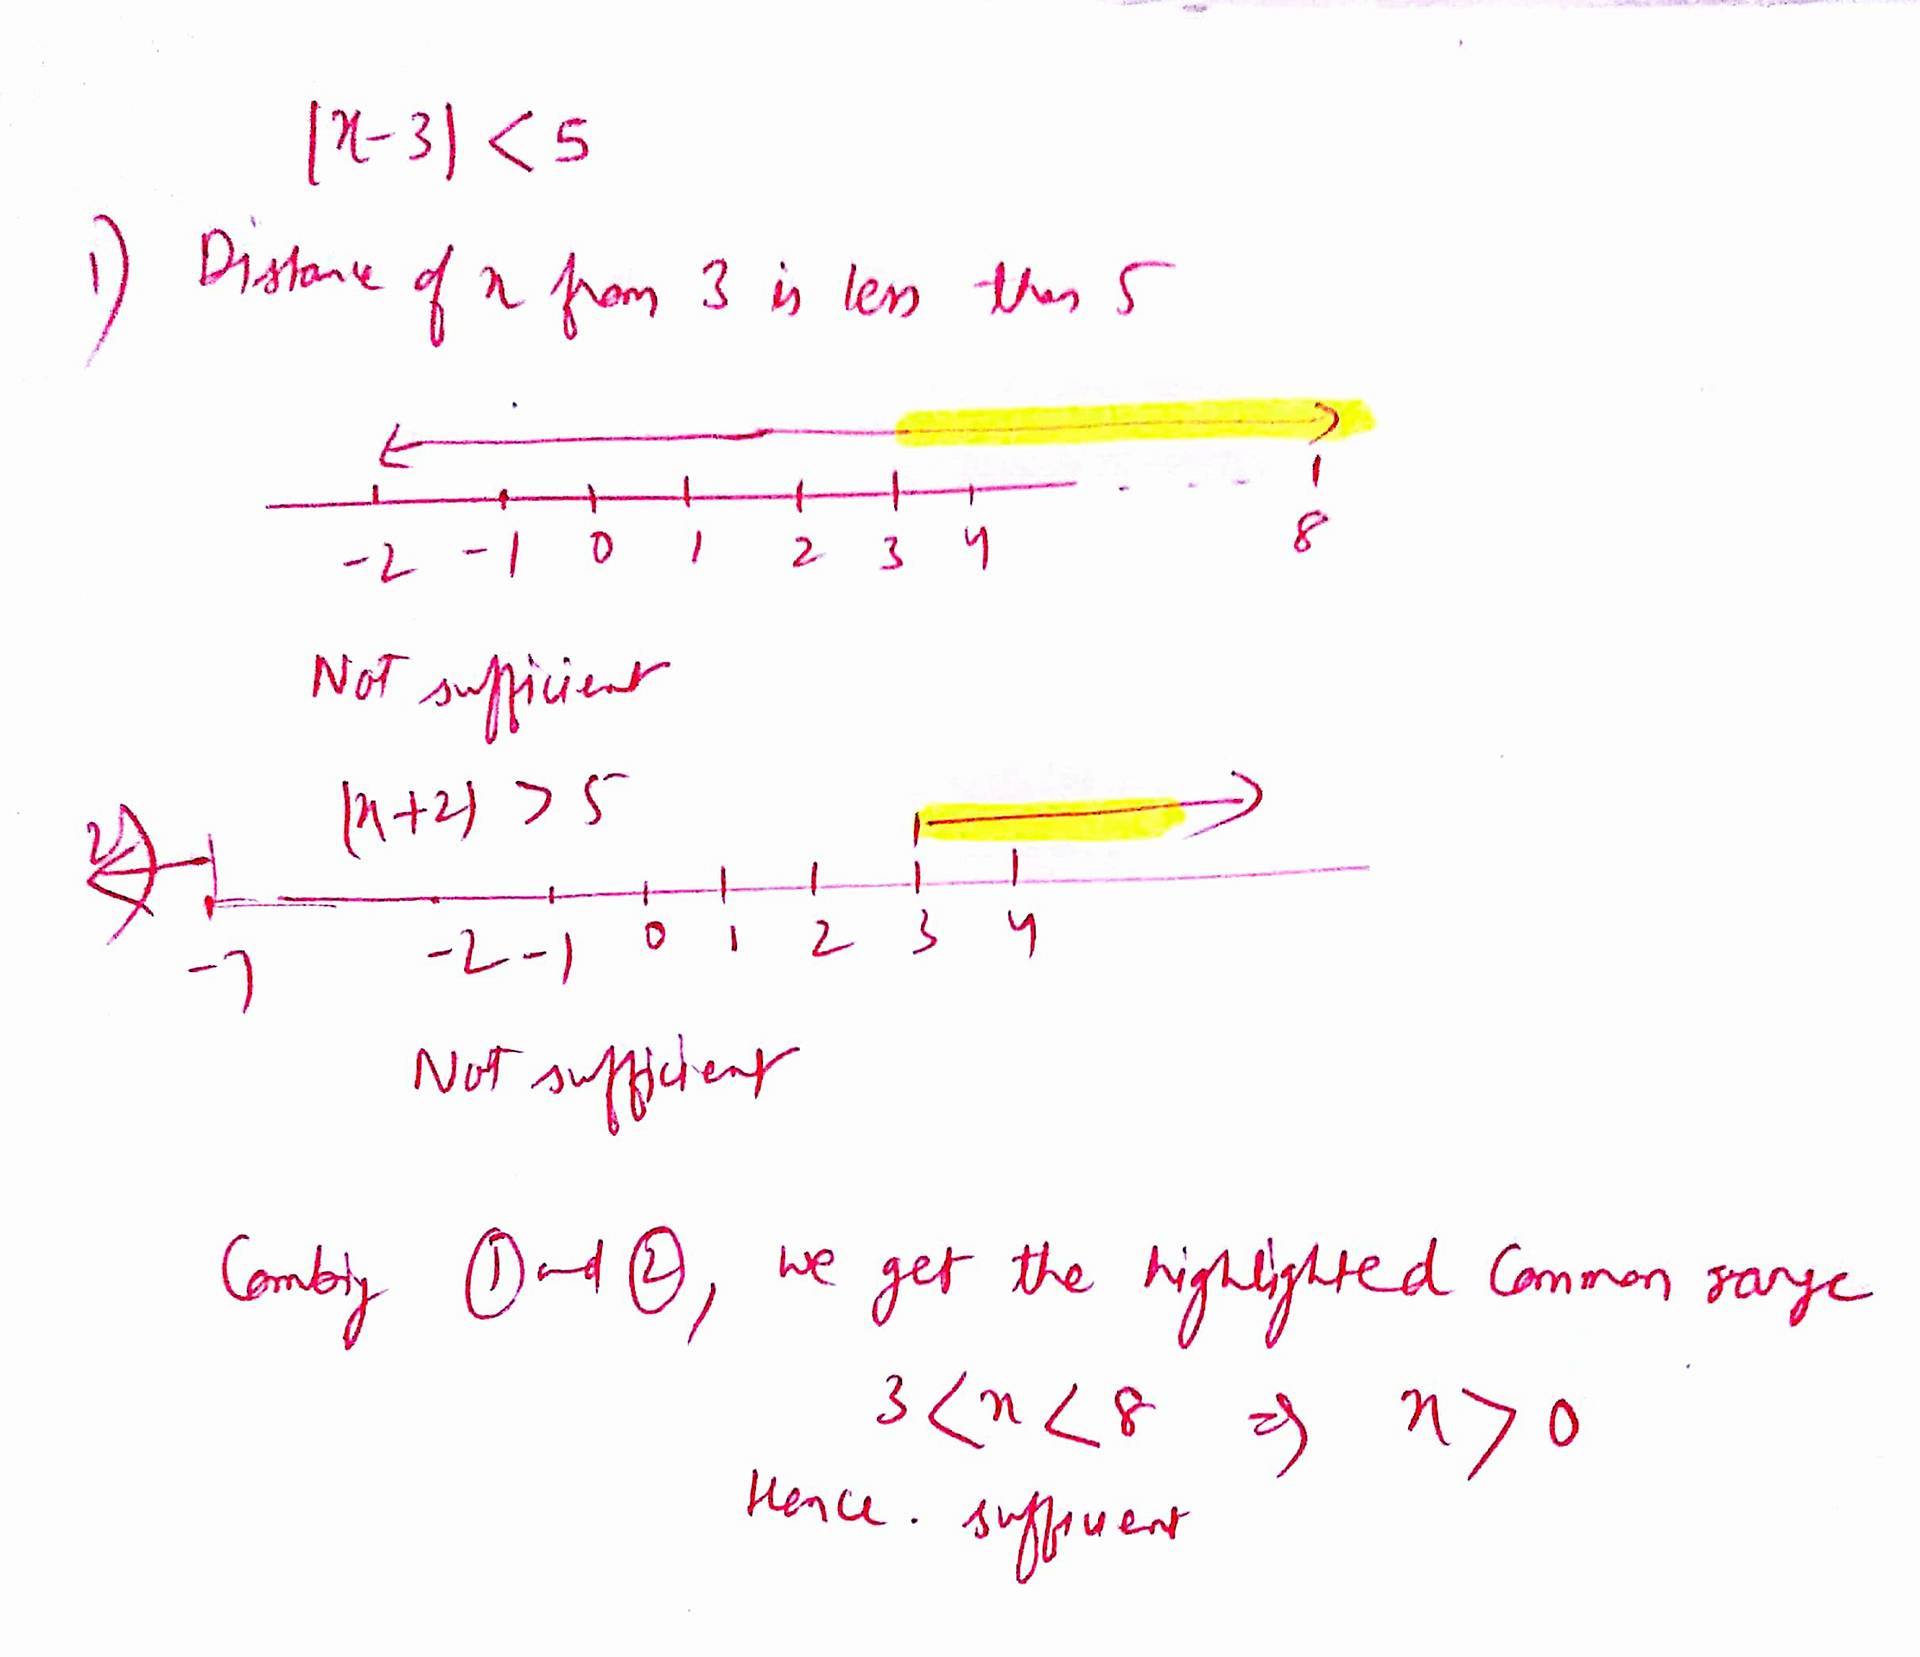 |x-3| < 5
1) Distance of x from 3 is less than 5
-2 -1 0 1 2 3 4 8
Not sufficient
2) |x+2| > 5
-7 -2 -1 0 1 2 3 4
Not sufficient
Combig ① and ②, we get the highlighted Common range
3 < x < 8 ⇒ x > 0
Hence. sufficient